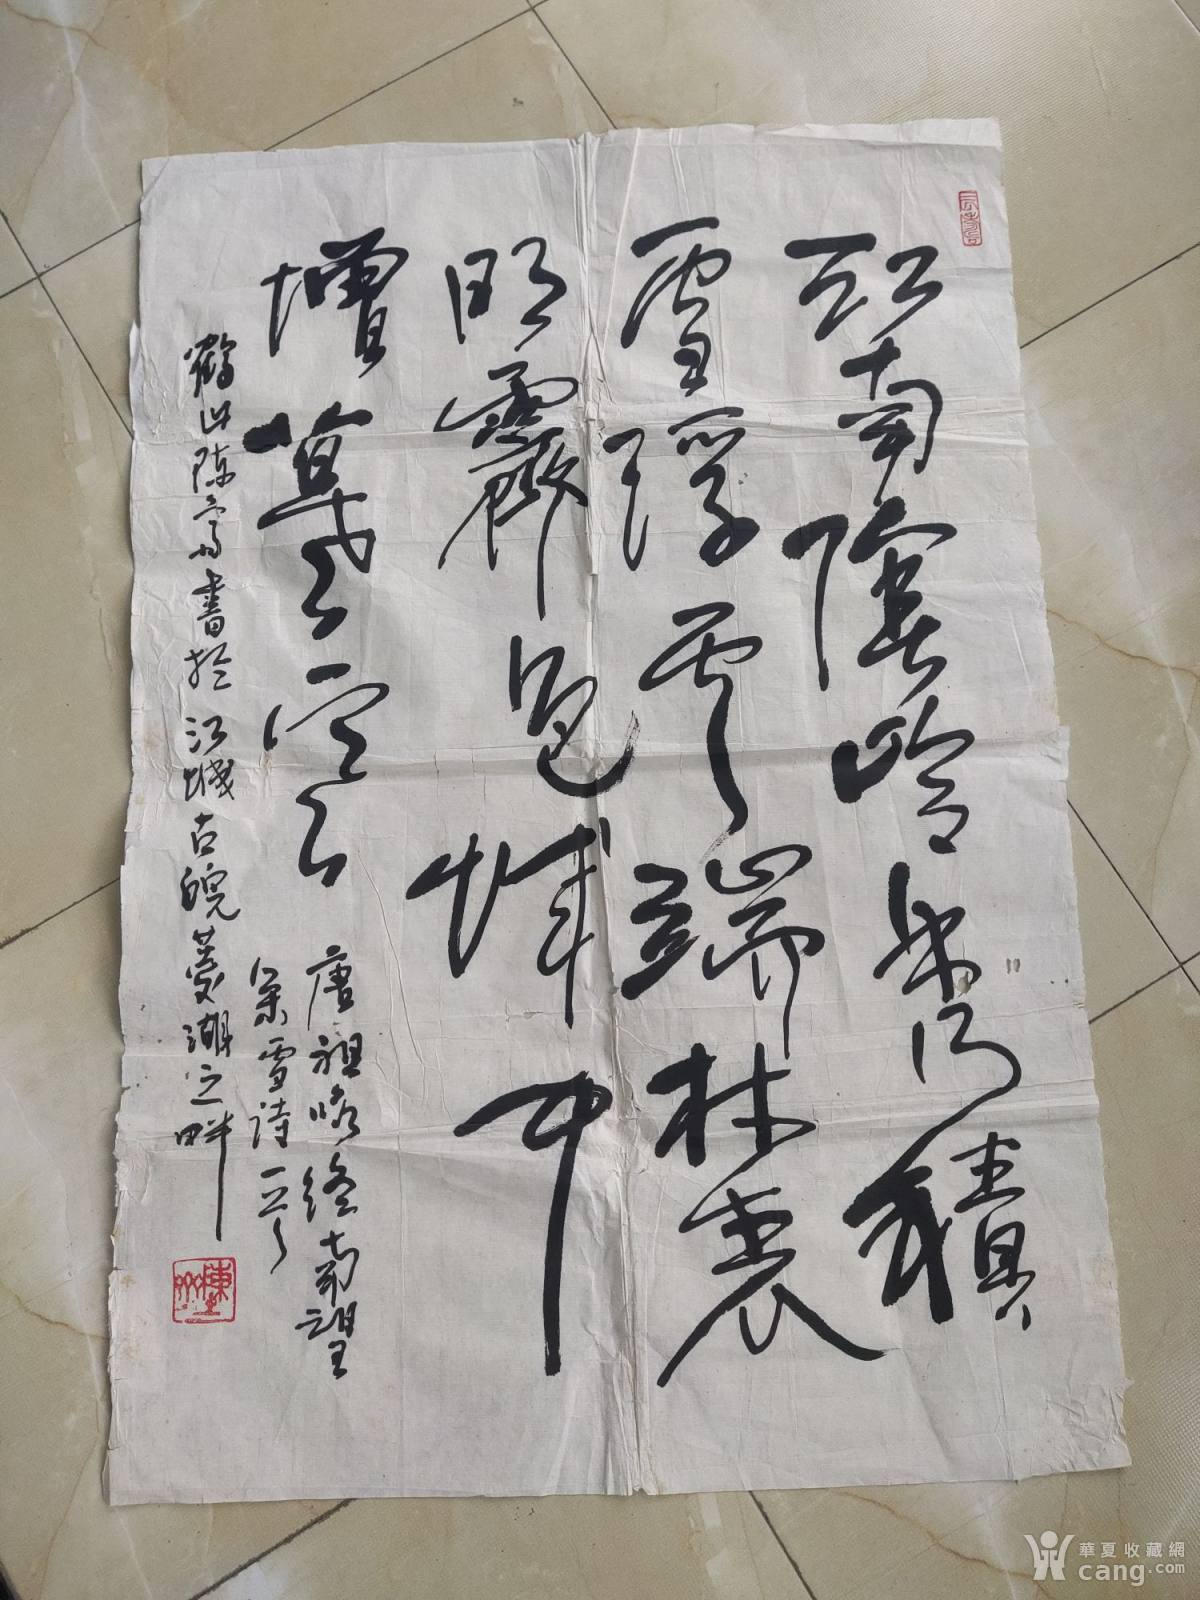 终南陰岭秀積
雪浮雲端林表
明霽色城中
增暮寒
唐祖咏终南望
余雪詩一首
陈書於江城古皖菱湖之畔
華夏收藏網
cang.com